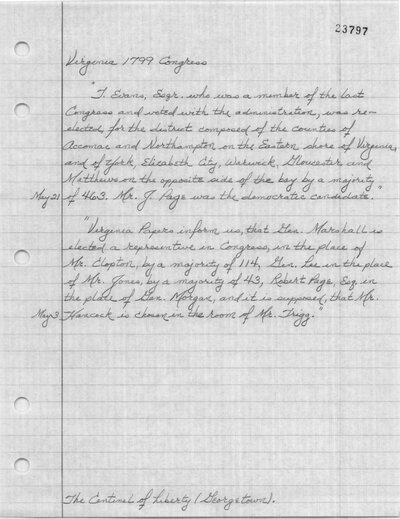 23797
Virginia 1799 Congress
"T. Evans, Esqr. who was a member of the last
Congress and voted with the administration, was re-
elected, for the district composed of the counties of
Accomac and Northampton on the Eastern shore of Virginia,
and of York, Elizabeth City, Warwick, Gloucester and
Matthews on the opposite side of the bay by a majority
May 21 of 463. Mr. J. Page was the democratic candidate."
"Virginia Papers inform us, that Gen. Marshall is
elected a representive in Congress, in the place of
Mr. Clopton, by a majority of 114, Gen. Lee in the place
of Mr. Jones, by a majority of 43, Robert Page, Esq. in
the place of Gen. Morgan, and it is supposed, that Mr.
May 3 Hancock is chosen in the room of Mr. Trigg."
The Centinel of Liberty (Georgetown).